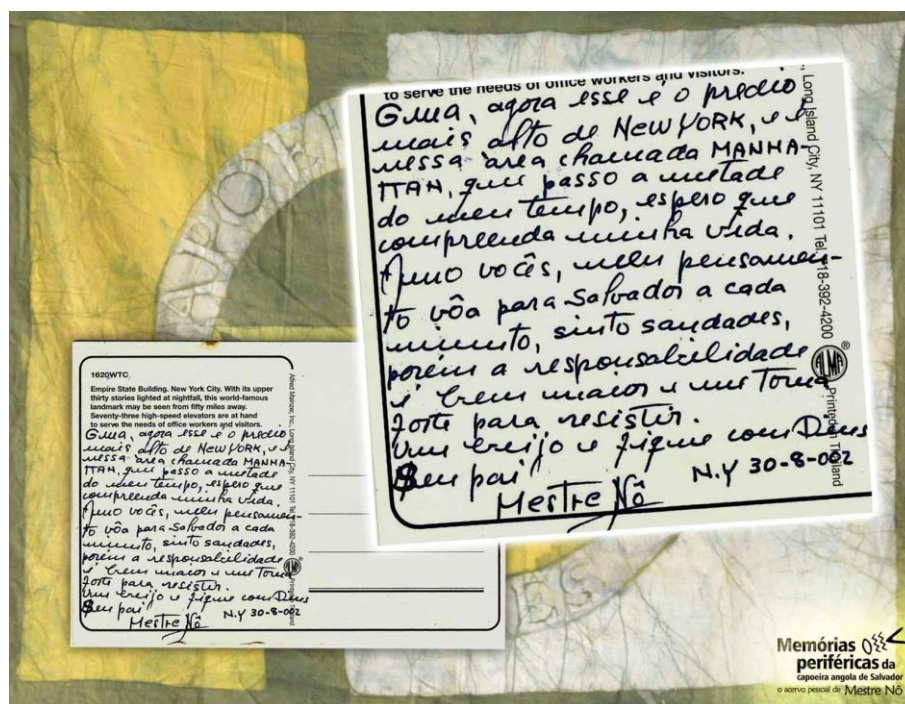 to serve the needs of office workers and visitors.
Guia, agora esse é o prédio
mais alto de NEW YORK, e é
nessa área chamada MANHA-
TTAN, que passo a metade
do meu tempo, espero que
compreenda minha vida.
Amo vocês, meu pensamen-
to vôa para Salvador a cada
minuto, sinto saudades,
porém a responsabilidade
é bem maior e me torna
forte para resistir.
Um beijo e fique com Deus
Seu pai
N.Y 30-8-002
Mestre Nô
, Long Island City, NY 11101 Tel. 718-392-4200 ALMA ® Printed in Thailand
1620WTC
Empire State Building. New York City. With its upper
thirty stories lighted at nightfall, this world-famous
landmark may be seen from fifty miles away.
Seventy-three high-speed elevators are at hand
to serve the needs of office workers and visitors.
Guia, agora esse é o prédio
mais alto de NEW YORK, e é
nessa área chamada MANHA-
TTAN, que passo a metade
do meu tempo, espero que
compreenda minha vida.
Amo vocês, meu pensamen-
to vôa para Salvador a cada
minuto, sinto saudades,
porém a responsabilidade
é bem maior e me torna
forte para resistir.
Um beijo e fique com Deus
Seu pai
N.Y 30-8-002
Mestre Nô
Alfred Mainzer, Inc., Long Island City, NY 11101 Tel. 718-392-4200 ALMA ® Printed in Thailand
Memórias
periféricas da
capoeira angola de Salvador
o acervo pessoal de Mestre Nô